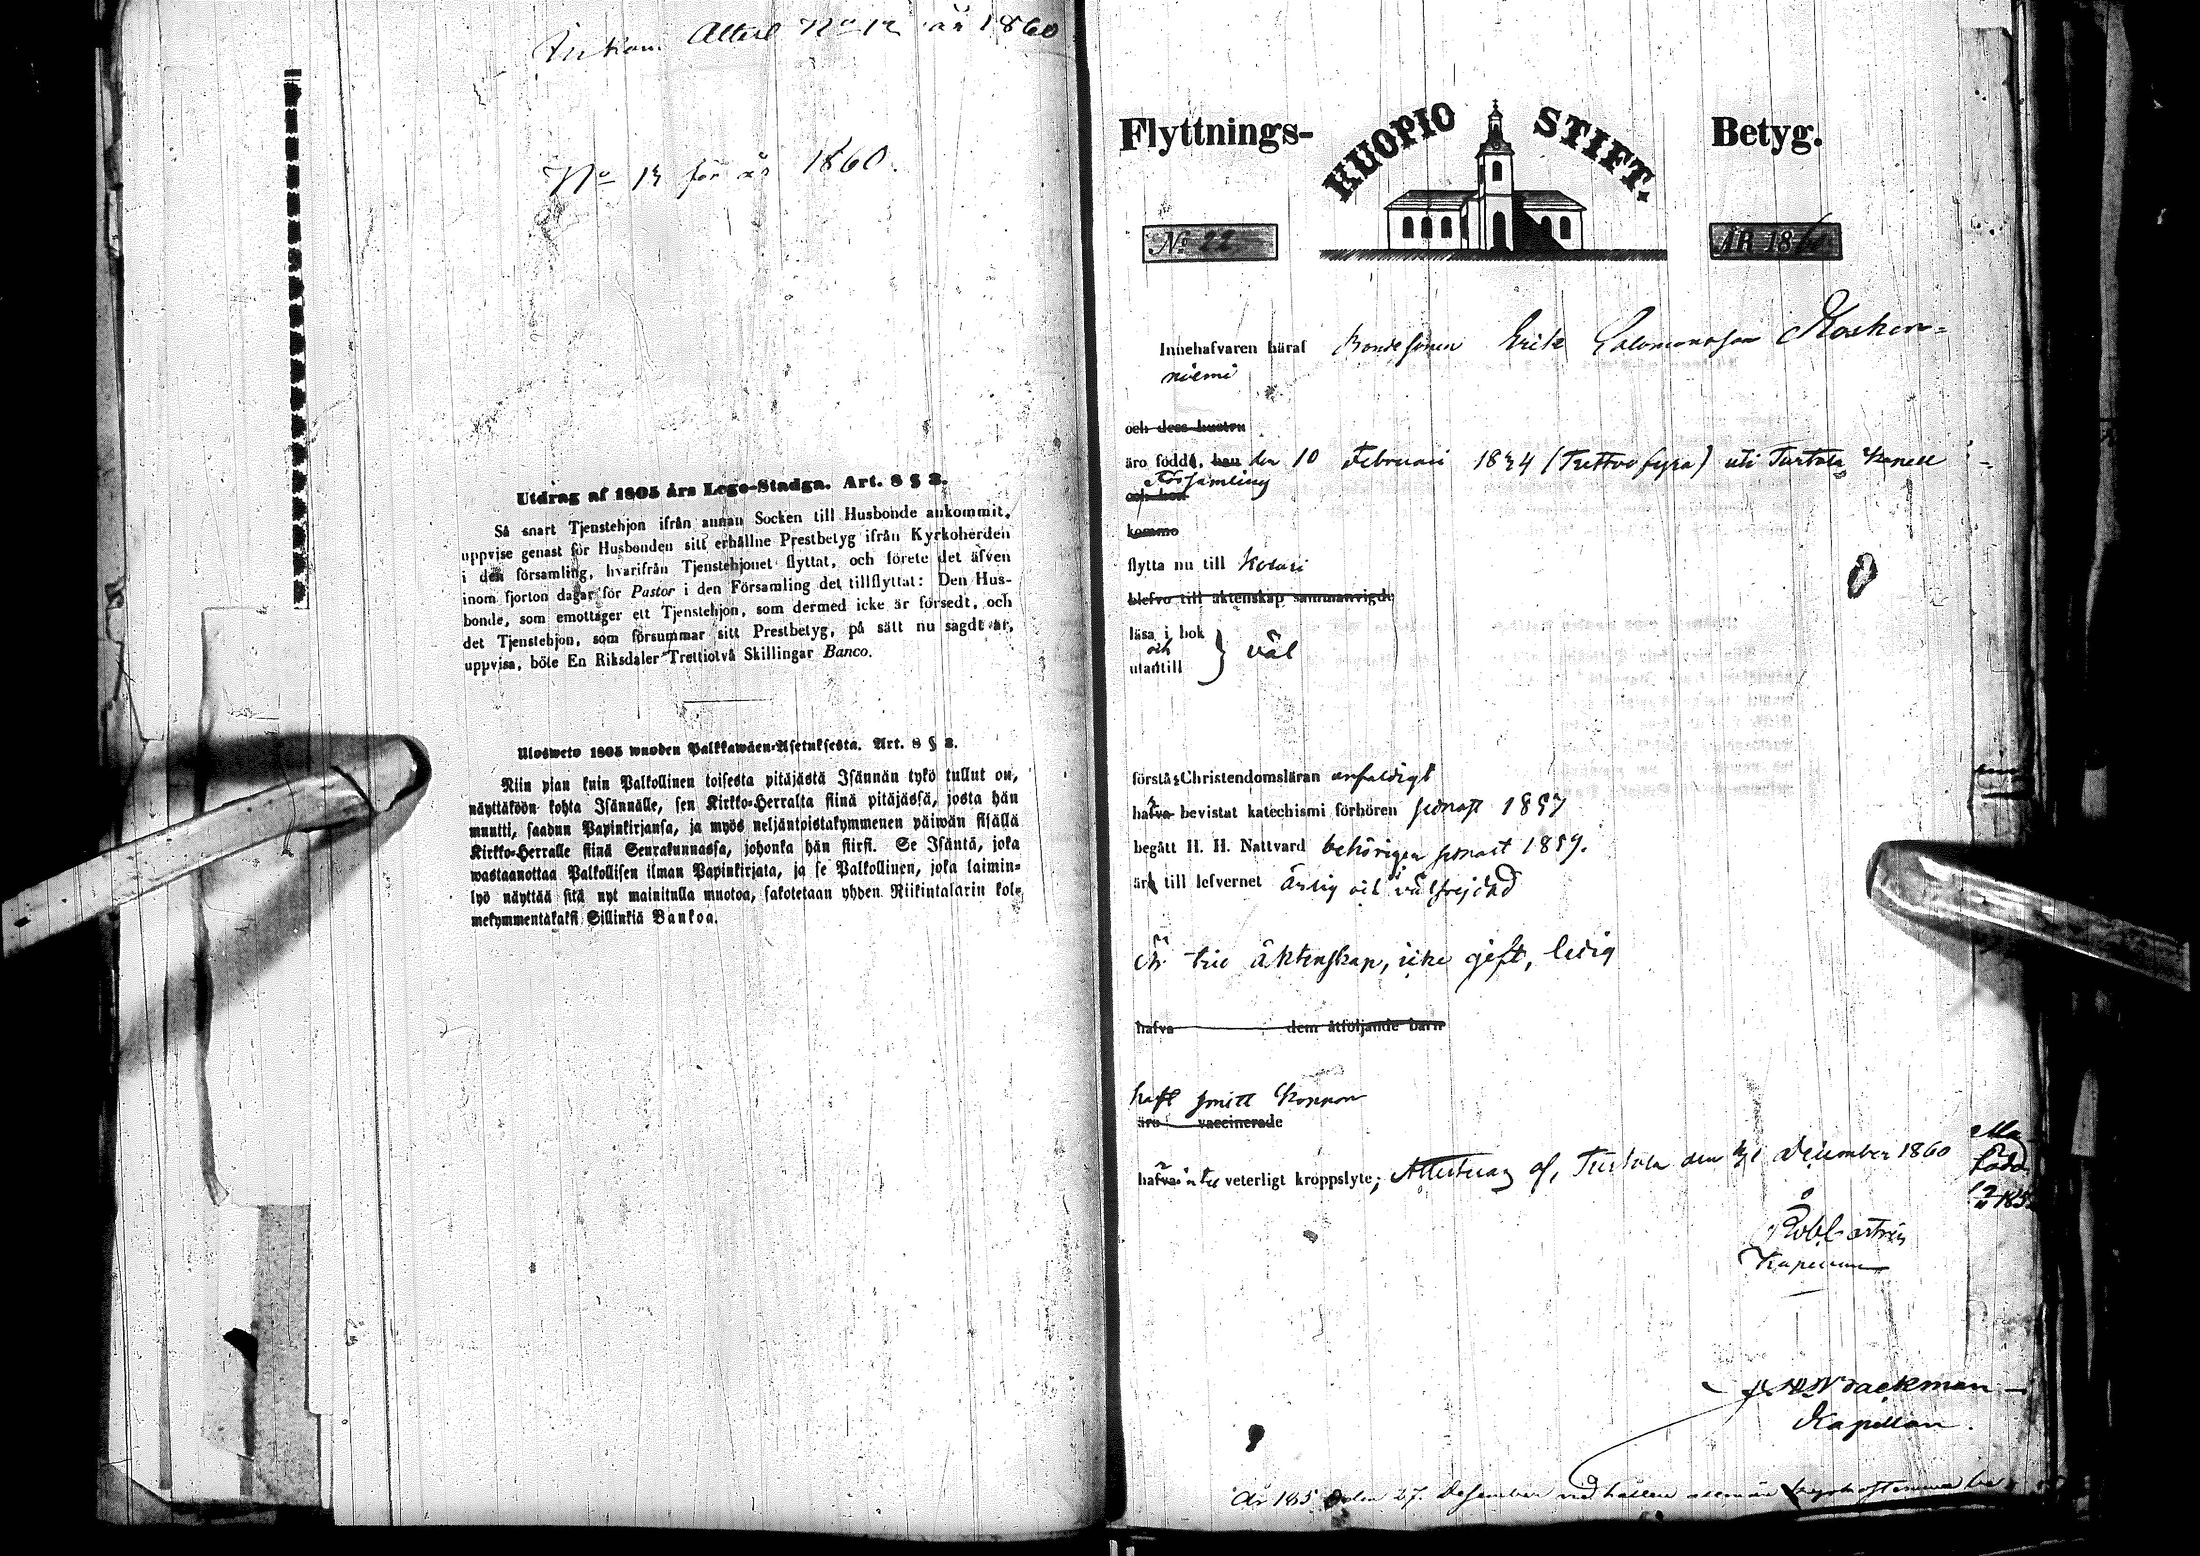 Inkom Attest No 12 år 1860
No 13 för år 1860.
Utdrag af 1805 års Lego-Stadga. Art. 8 § 3.
Så snart Tjenstehjon ifrån annan Socken till Husbonde ankommit,
uppvise genast för Husbonden sitt erhållne Prestbetyg ifrån Kyrkoherden
i den församling, hvarifrån Tjenstehjonet flyttat, och förete det äfven
inom fjorton dagar för Pastor i den Församling det tillflyttat: Den Hus-
bonde, som emottager ett Tjenstehjon, som dermed icke är försedt, och
det Tjenstehjon, som försummar sitt Prestbetyg, på sätt nu sagdt är,
uppvisa, böte En Riksdaler Trettiotvå Skillingar Banco.
Uloswetv 1805 wuoden Palkkawäen-Asetuksesta. Art. 8 § 3.
Niin pian kuin Palkollinen toisesta pitäjästä Isännän tykö tullut on,
näyttäköön kohta Isännälle, sen Kirkko-Herralta siinä pitäjässä, josta hän
muutti, saadun Papinkirjansa, ja myös neljäntoistakymmenen päiwän sisällä
Kirkko-Herralle siinä Seurakunnassa, johonka hän siirsi. Se Isäntä, joka
wastaanottaa Palkollisen ilman Papinkirjata, ja se Palkollinen, joka laimin-
lyö näyttää sitä nyt mainitulla muotoa, sakotetaan yhden Riikintalarin kol-
mekymmentäkaksi Sillinkiä Bankoa.
Flyttnings- KUOPIO STIFT. Betyg.
No 22 ÅR 1860
Innehafvaren häraf Bondesonen Erik Salomonsson Kosken-
niemi
och dess hustru
äro födde, han den 10 Februari 1834 (Trettio fyra) uti Turtola Kapell
Församling
och hon
komme
flytta nu till Kolari
blefvo till äktenskap sammanvigde
läsa i bok
och väl
utantill
förstå Christendomsläran enfaldigt
hafva bevistat katechismi förhören senast 1857
begått H. H. Nattvard behörigen senast 1859.
äro till lefvernet ärlig och välfrejdad
Är frie äktenskap, icke gift, ledig
hafva dem åtföljande barn
haft smitt Koppor
äro vaccinerade
hafva inte veterligt kroppslyte; Attesteras af, Turtola den 31 December 1860
Rob Castrén
Kapellan
Wackman
Kapellan.
År 185 den 27. December vid hållen allmän